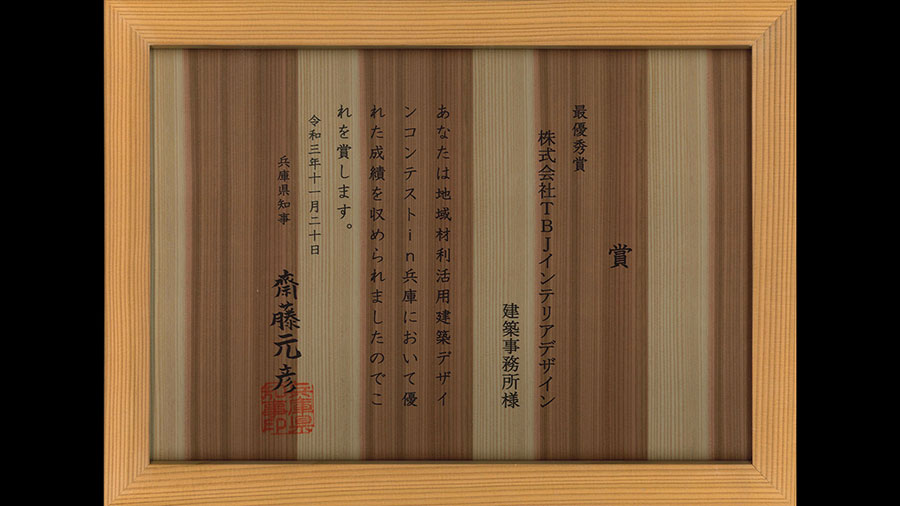 賞
最優秀賞
株式会社TBJインテリアデザイン
建築事務所様
あなたは地域材利活用建築デザイ
ンコンテストin兵庫において優
れた成績を収められましたのでこ
れを賞します。
令和三年十一月二十日
兵庫県知事
齋藤元彦
兵庫県
知事印